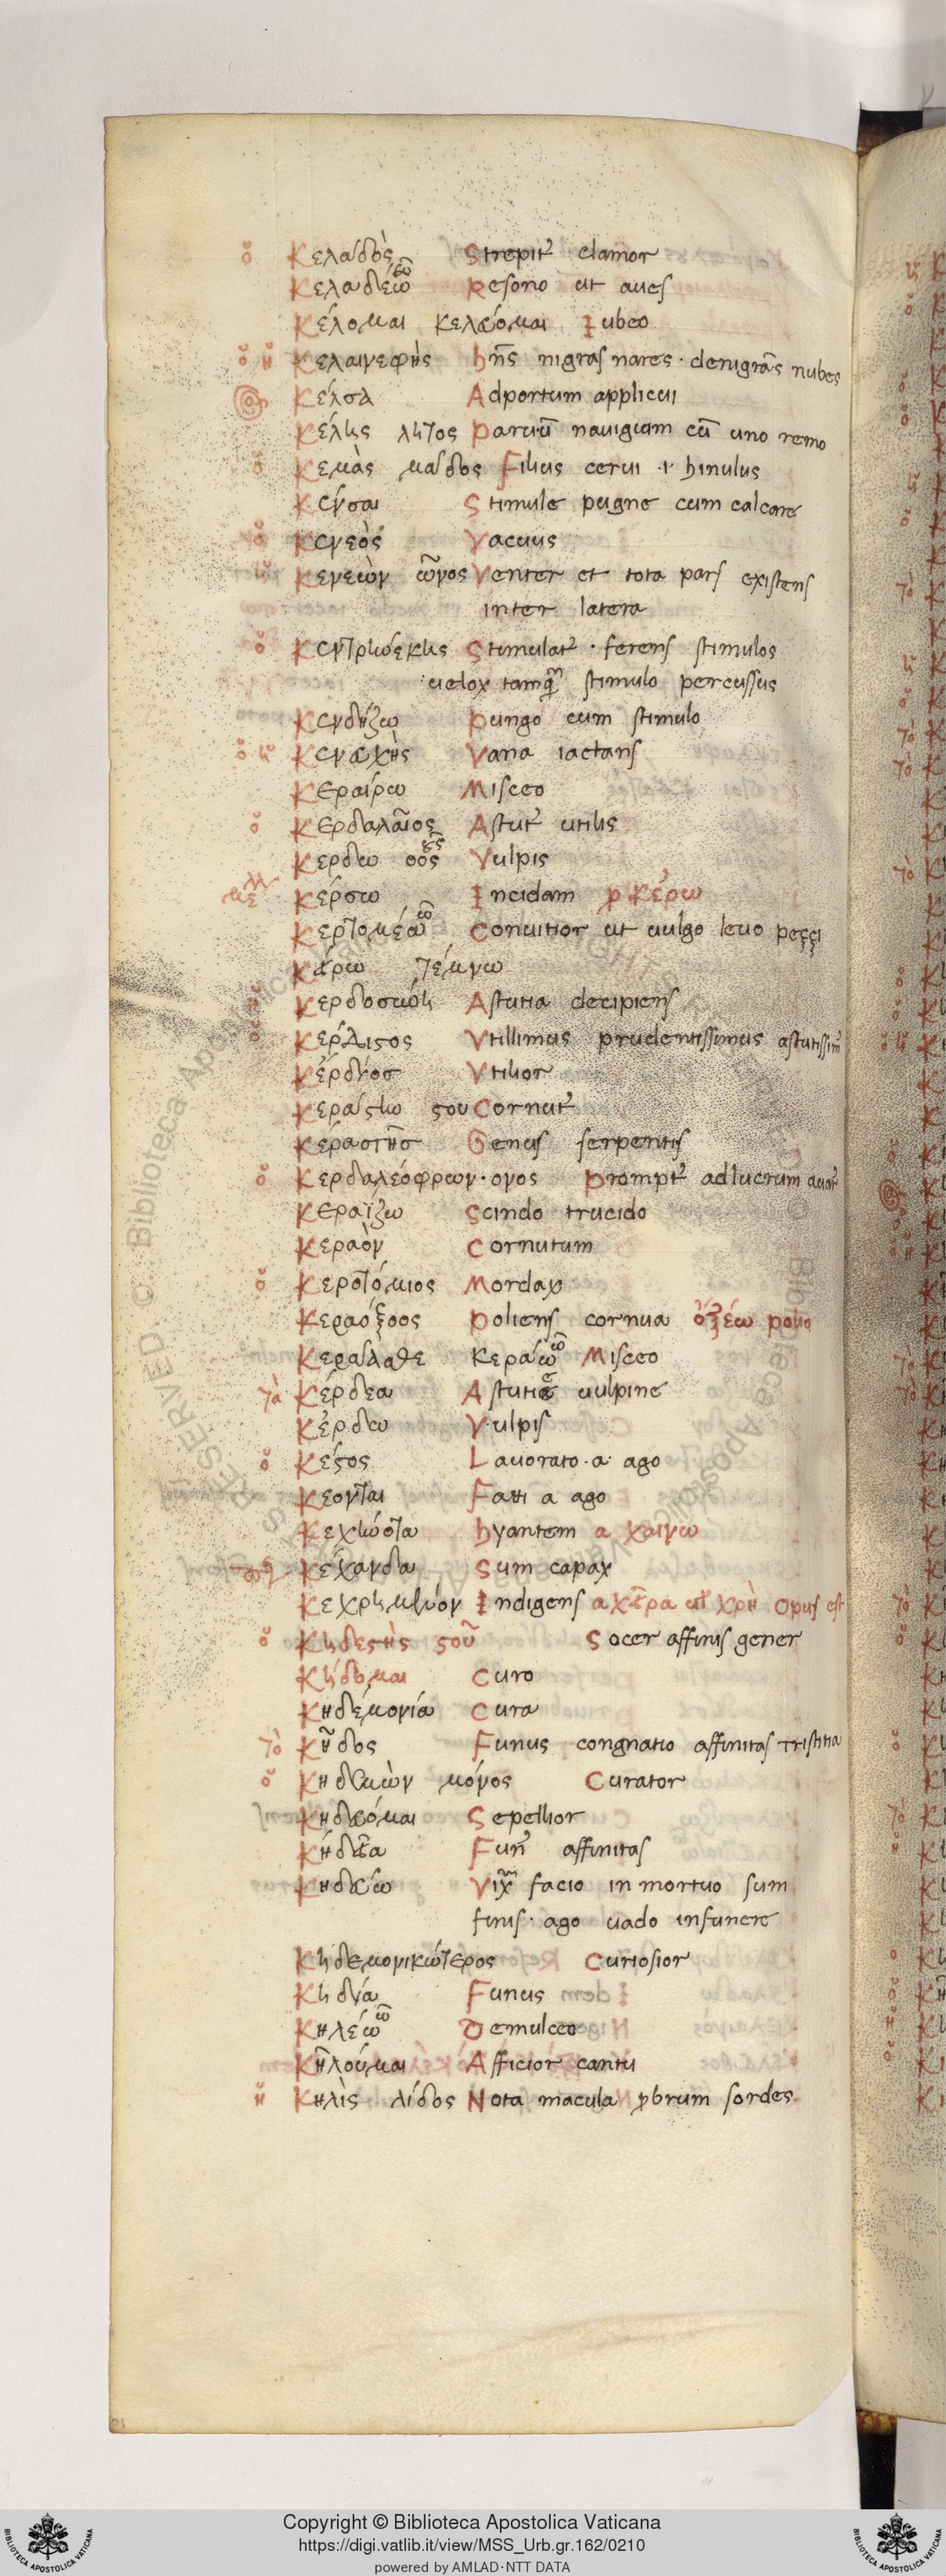 ὁ Κελαδὸς Strepit᾽ clamor
Κελαδέω ῶ Resono ut aues
Κέλομαι κελεύομαι Iubeo
ὁ ἡ Κελαινεφὴς hñs nigras nares · denigrãs nubes
Κέλσα Adportum applicui
Κέλης λητος Paruũ nauigium cũ uno remo
ὁ Κεμὰς μαδος Filius cerui .i. hinulus
Κένσαι Stimule pugne cum calcare
Κενεὸς Vacuus
Κενεὼν ῶνος Venter et tota pars existens
inter latera
ὁ Stimulat᾽ · ferens stimulos
uelox tamq̃ stimulo percussus
Pungo cum stimulo
ὁ ἡ Κεναυχὴς Vana iactans
Κεραίρω Misceo
ὁ Κερδαλαῖος Astut᾽ utilis
Κερδω οος Vulpis
Κέρσω Incidam p κέρω
Κερτομέω ῶ Conuitior ut uulgo leuo pezzi
Κείρω τέμνω
Κερδοσύνη Astutia decipiens
Κέρδιστος Vtillimus prudentissimus astutissim᾽
Vtilior
Κεράστης στου Cornut᾽
Κεράστης Genus serpentis
ὁ Κερδαλεόφρων · ονος Prompt᾽ adlucrum auar᾽
Κεραΐζω Scindo trucido
Κεραὸν Cornutum
ὁ Κεροτόμιος Mordax
Κεραόξοος Poliens cornua ὀξέω polio
Κεράσαθε κεράω ῶ Misceo
τὰ Κέρδεα Astutie uulpine
Κέρδω Vulpis
ὁ Κέστος Lauorato · a · ago
Κέονται Fatti a ago
Κεχηότα hyantem a χαινω
Κέχανδα Sum capax
Indigens a χεῖρα uel χρὴ opus est
ὁ Κηδεστὴς στοῦ Socer affinis gener
Κήδομαι Curo
Κηδεμονία Cura
τὸ Κῆδος Funus congnatio affinitas tristitia
ὁ Κηδεμὼν μόνος Curator
Κηδεύομαι Sepellior
Κήδεια Fun᾽ affinitas
Κηδεύω facio in mortuo sum
finis · ago uado infunere
Κηδεμονικώτερος Curiosior
Funus
Κηλέω ῶ Demulceo
Κηλοῦμαι Afficior cantu
ἡ Κηλὶς λίδος Nota macula pbrum sordes
Copyright © Biblioteca Apostolica Vaticana
https://digi.vatlib.it/view/MSS_Urb.gr.162/0210
powered by AMLAD·NTT DATA